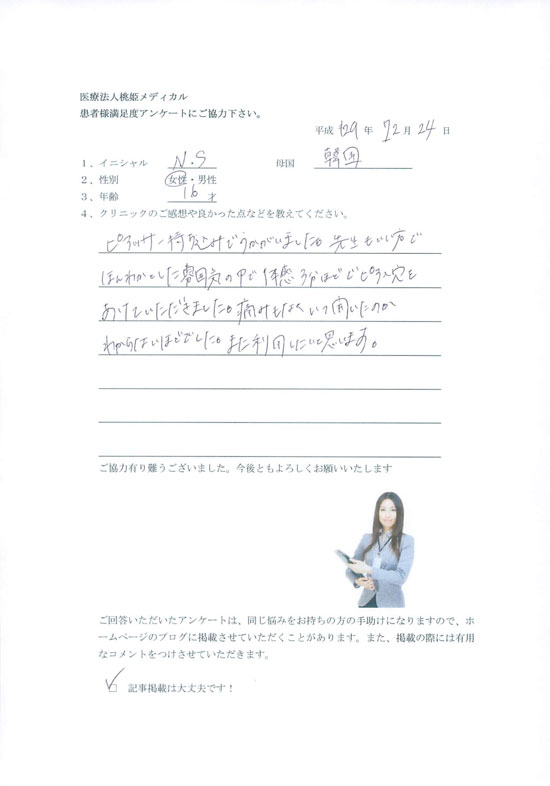 医療法人桃姫メディカル
患者様満足度アンケートにご協力下さい。
平成 29 年 12 月 24 日
1．イニシャル N.S 母国 韓国
2．性別 女性・男性
3．年齢 16 才
4．クリニックのご感想や良かった点などを教えてください。
ピアッサー持ち込みでうかがいました。先生もいい方で
ほんわかとした雰囲気の中で体感3分ほどでピアス穴を
あけていただきました。痛みもなくいつ開いたのか
わからないほどでした。また利用したいと思います。
ご協力有り難うございました。今後ともよろしくお願いいたします
ご回答いただいたアンケートは、同じ悩みをお持ちの方の手助けになりますので、ホ
ームページのブログに掲載させていただくことがあります。また、掲載の際には有用
なコメントをつけさせていただきます。
記事掲載は大丈夫です！